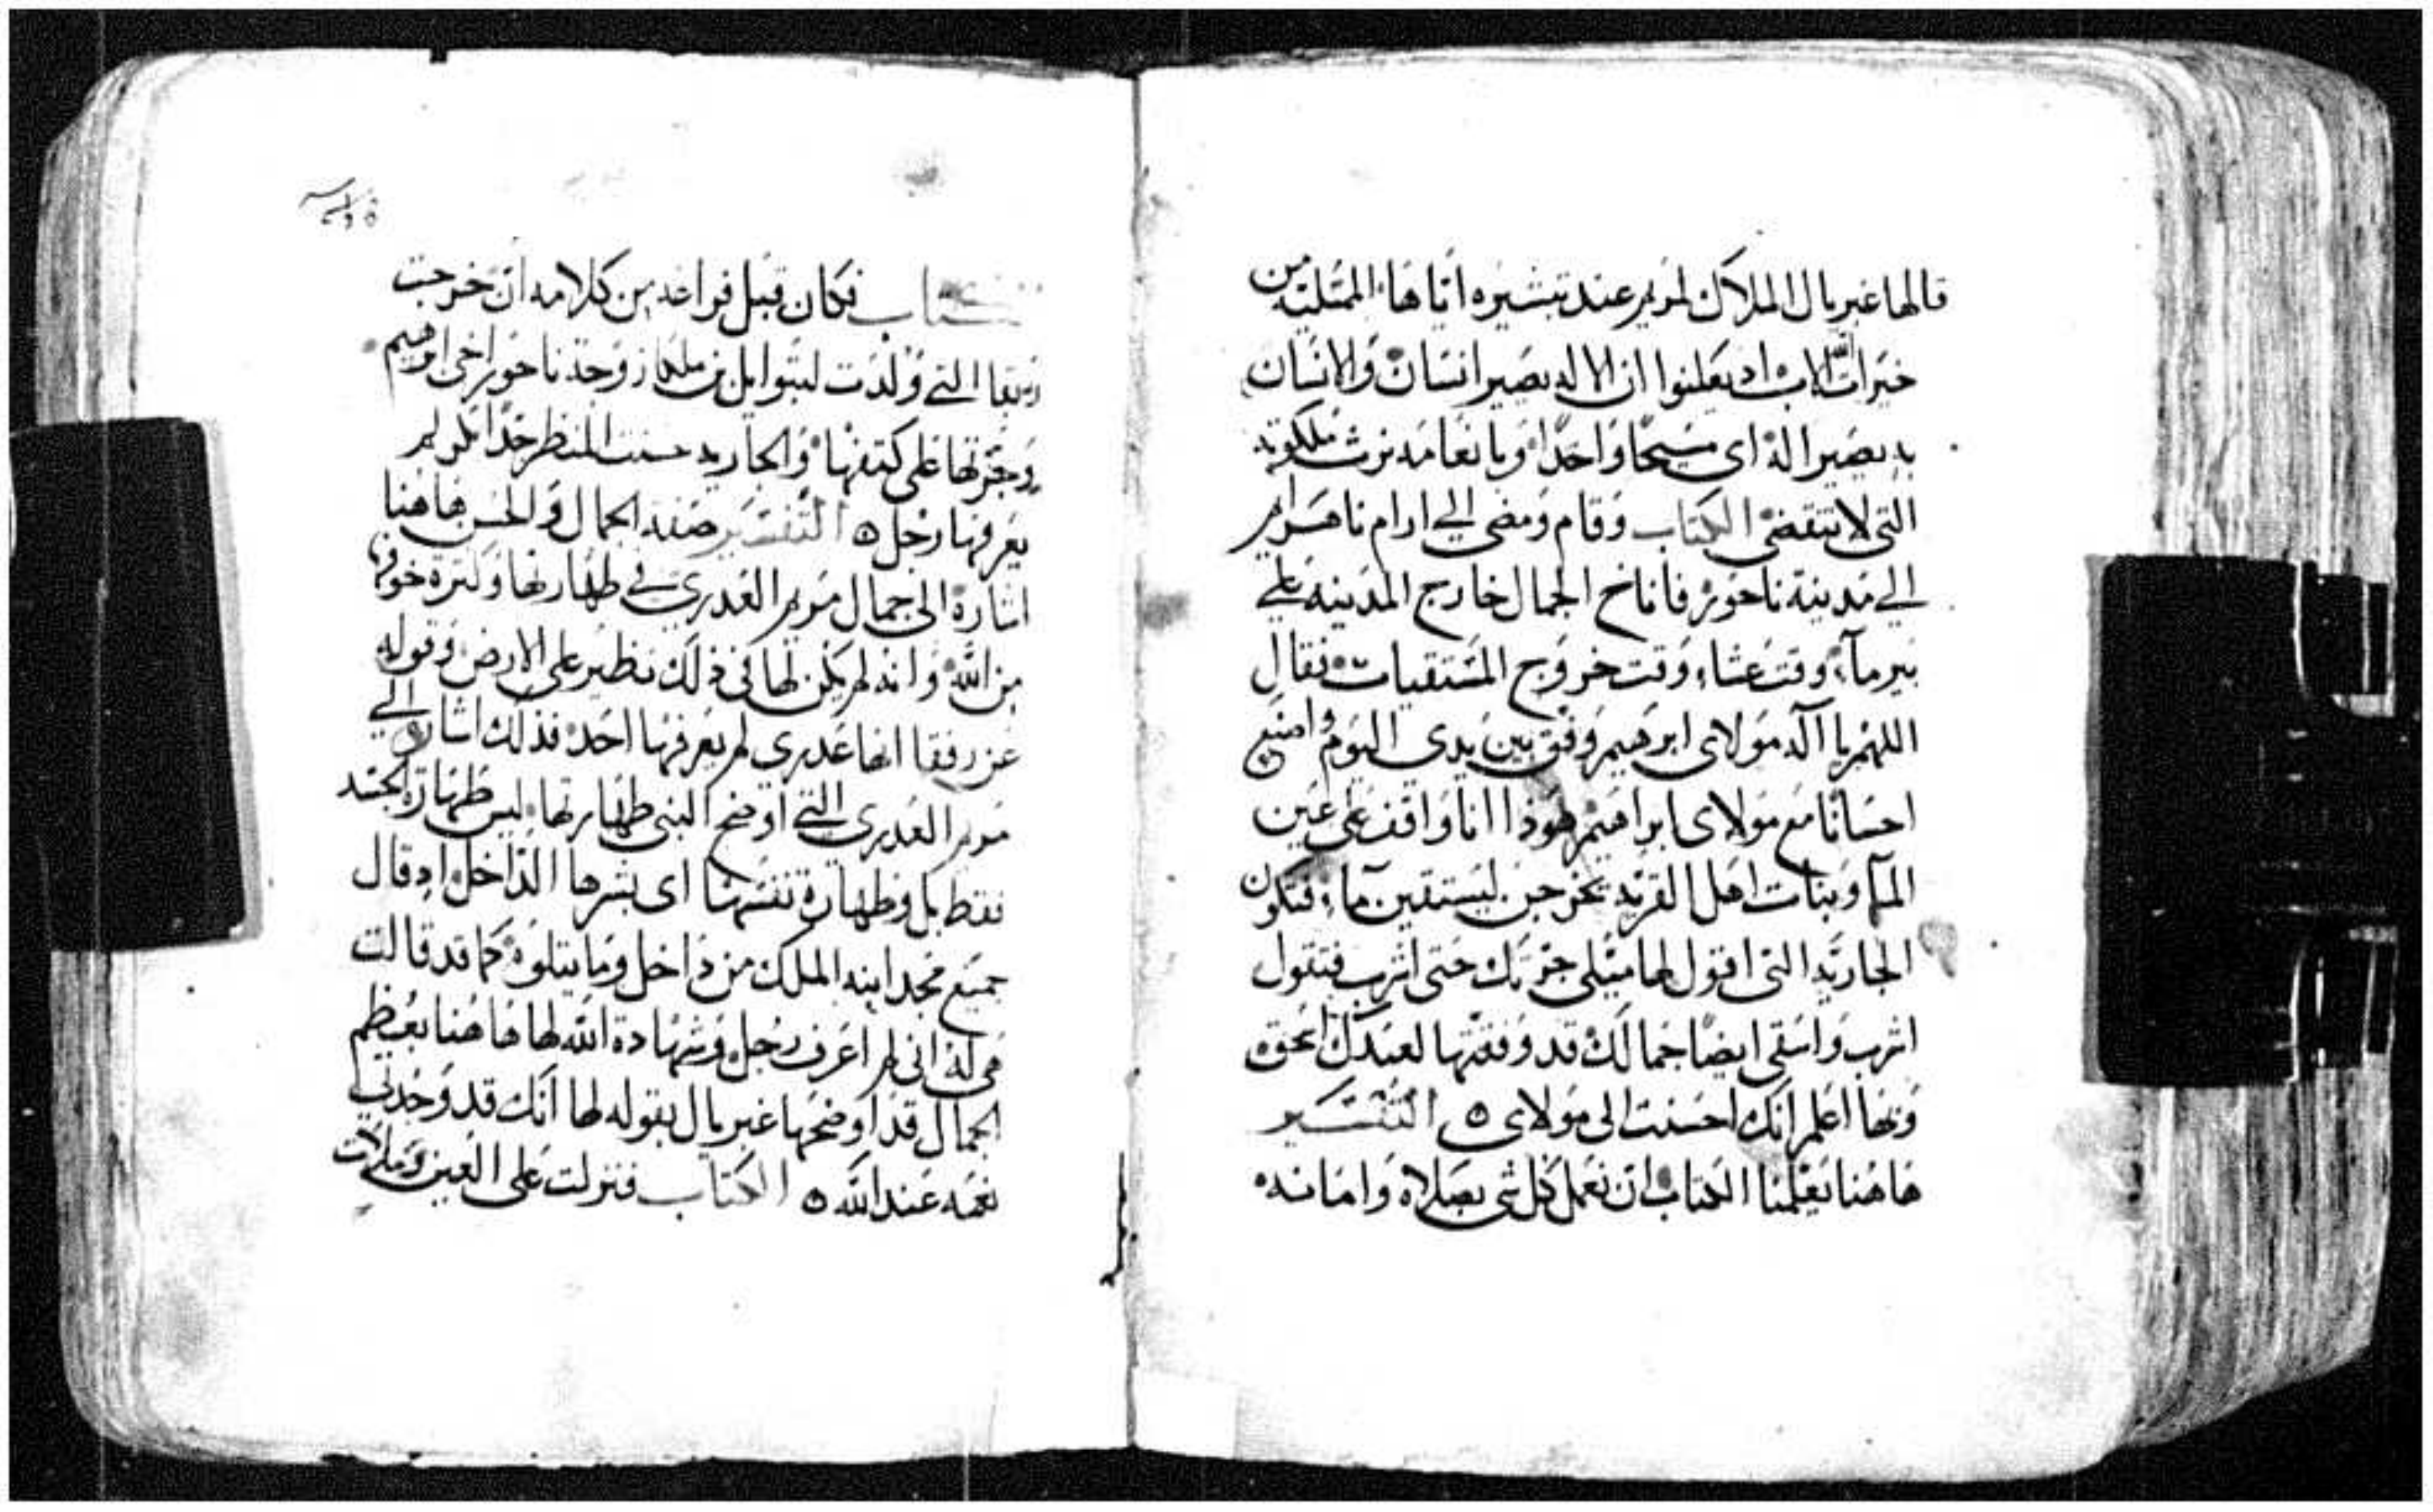 قالها غبريال الملاك لمريم عند تبشيره اياها الممتلية من
خيرات الله الاب اد يعلنوا ان الاله يصير انسان والانسان
به يصير اله اى مسيحا واحدا وبانعامه نرث ملكوته
التى لا تنقضى الكتاب وقام ومضى الى ارام ناهرايم
الى مدينة ناحور فاناخ الجمال خارج المدينه على
بير مآء وقت عشاء وقت خروج المستقيات فقال
اللهم يا آله مولاى ابرهيم وفق بين يدى اليوم واصنع
احسانا مع مولاى ابراهيم هوذا انا واقف على عين
المآ وبنات اهل القريه يخرجن ليستقين مآء فتكون
الجاريه التى اقول لها ميلى جرتك حتى اشرب فتقول
اشرب واسقى ايضا جمالك قد وفقتها لعبدك اسحق
وبها اعلم انك احسنت الى مولاى ه التفسير
هاهنا يعلمنا الكتاب ان نعمل كل شى بصلاه وامانه
الكتاب فكان قبل فراغه من كلامه ان خرجت
رفقا التى ولدت لبتوايل بن ملكا زوجة ناحور اخى ابرهيم
وجرتها على كتفها والجاريه حسنت المنظر جدا بكر لم
يعرفها رجل ه التفسير صفة الجمال والحسن هاهنا
اشارة الى جمال مريم العدرى فى طهارتها وكثرة خوفها
من الله وانه لم يكن لها فى ذلك نظير على الارض وقوله
عن رفقا انها عدرى لم يعرفها احد فذلك اشار الى
مريم العدرى التى اوضح النبى طهارتها ليس طهارة الجسد
فقط بل وطهارة نفسها اى بشرها الداخل اد قال
جميع مجد ابنه الملك من داخل وما يتلوه كما قد قالت
هى له انى لم اعرف رجل وشهادة الله لها هاهنا بعظم
الجمال قد اوضحها غبريال بقوله لها انك قد وجدتى
نعمه عند الله ه الكتاب فنزلت على العين وملات